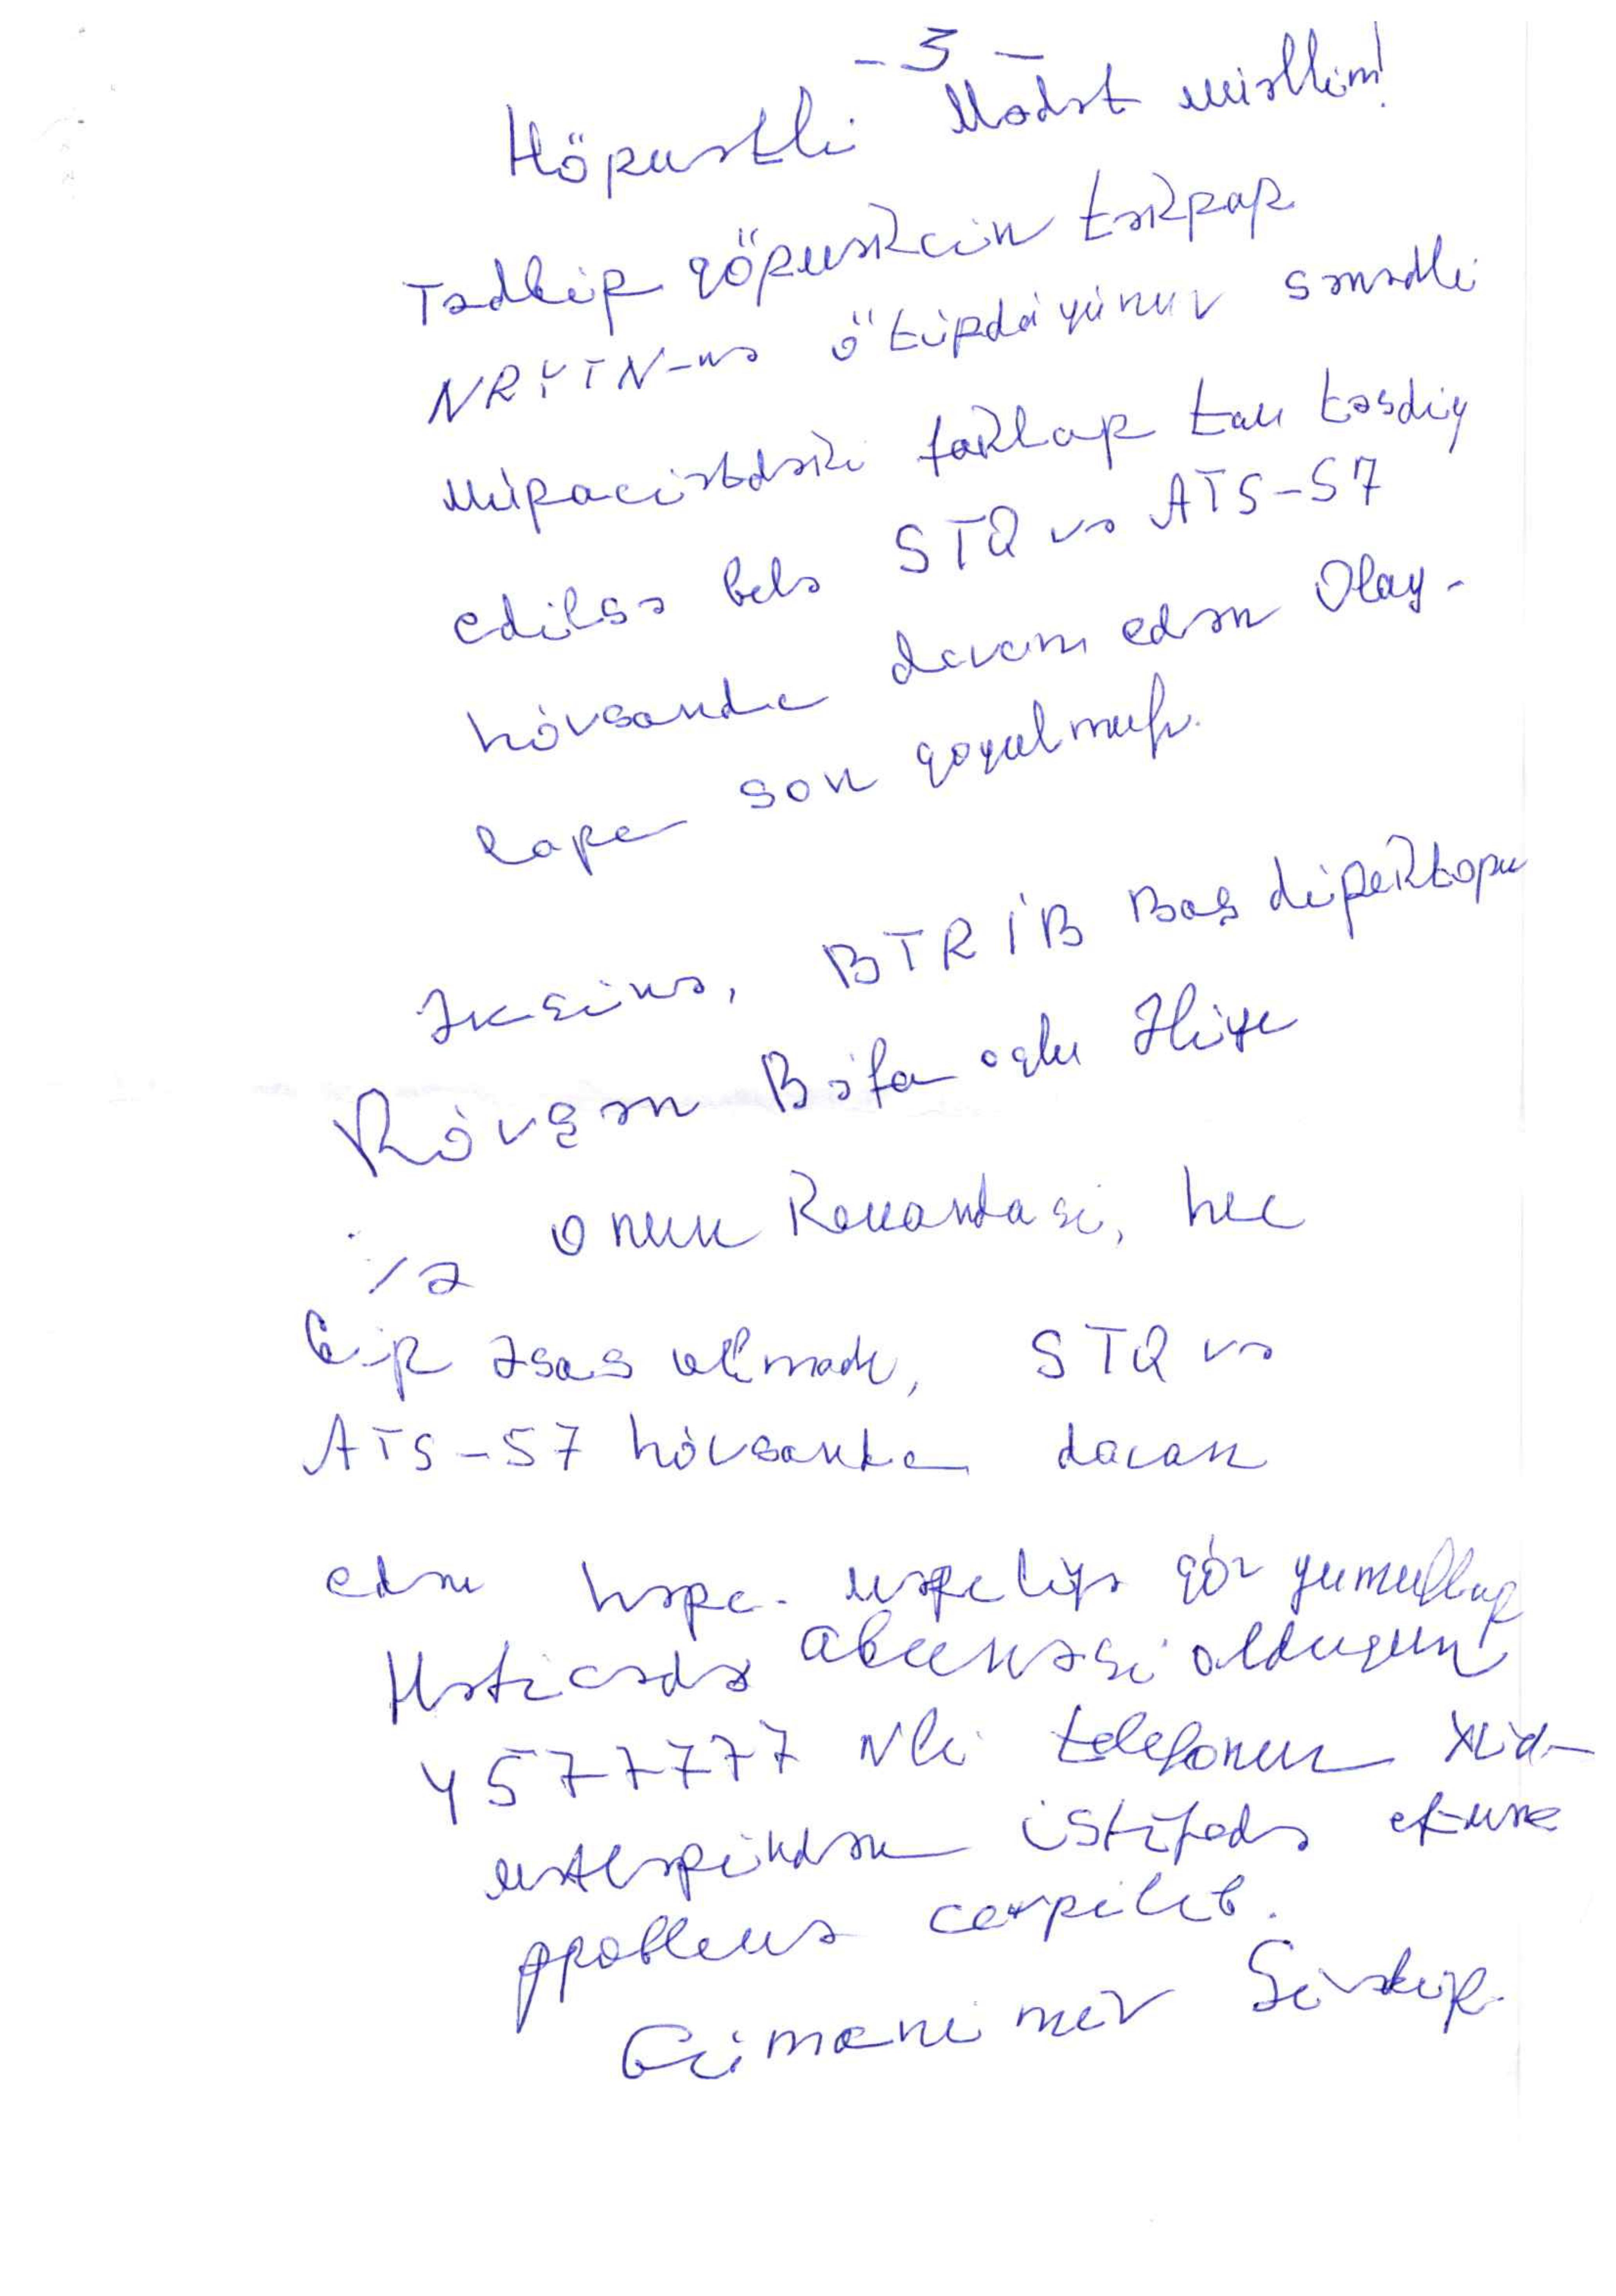 - 3 -
Hörmətli Mədət müəllim!
Tədbir görməkçün təkrar
NRYTN-nə ötürdüyünüz sənədli
müraciətdəki faktlar tam təsdiq
edilsə belə STQ və ATS-57
hövsanda davam edən olay-
lara son qoyulmur.
Əksinə, BTRİB Baş direktoru
Rövşən oğlu
və onun komandası, heç
bir əsas olmadan, STQ və
ATS-57 hövsanda davam
edən hərc-mərcliyə göz yumurlar
Nəticədə abunəsi olduğum
4577777 Nli telefonun xid-
mətlərindən istifadə etmək
problemə çevrilib.